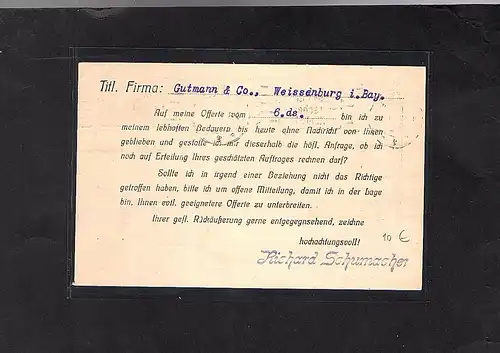 Titl. Firma: Gutmann & Co., Weissenburg i.Bay.
Auf meine Offerte vom 6.ds. bin ich zu
meinem lebhaften Bedauern bis heute ohne Nachricht von Ihnen
geblieben und gestatte ich mir dieserhalb die höfl. Anfrage, ob ich
noch auf Erteilung Ihres geschätzten Auftrages rechnen darf?
Sollte ich in irgend einer Beziehung nicht das Richtige
getroffen haben, bitte ich um offene Mitteilung, damit ich in der Lage
bin, Ihnen evtl. geeignetere Offerte zu unterbreiten.
Ihrer gefl. Rückäußerung gerne entgegensehend, zeichne
hochachtungsvoll!
10 €
Richard Schumacher